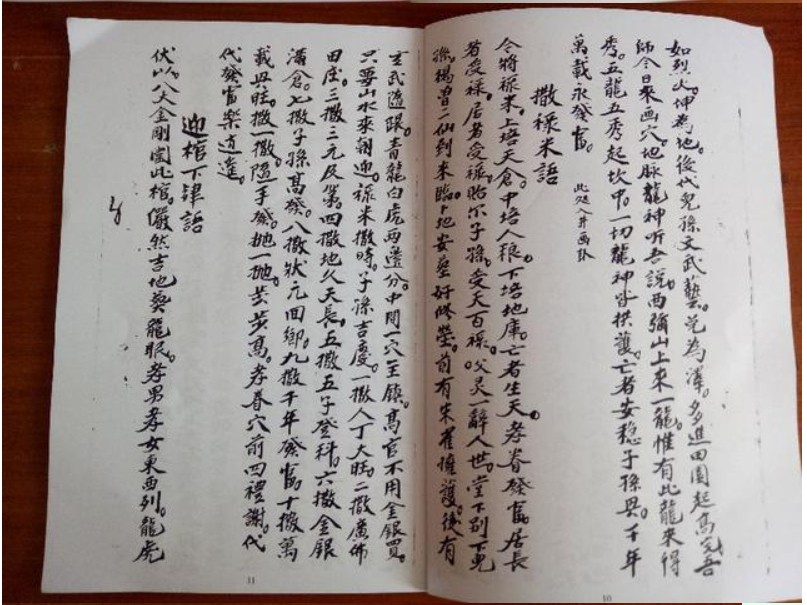 如烈火。坤為地。後代兒孫文武藝。兌為澤。多進田園起高完。吾
師今日來画穴。地脉龍神听吾說。西弥山上來一龍。惟有此龍來得
秀。五龍五秀起坎中。一切龍神皆拱護。亡者安稳子孫興。千年
萬載永發富。 此处入井画卦
撒禄米語
今將禄米。上培天倉。中培人粮。下培地庫。亡者生天。孝眷發富。居長
者受禄。居者受禄。貽尔子孫。受天百禄。父灵一辭人世。堂下别下兒
孫。楊曾二仙到來臨。卜地安塋好修塋。前有朱雀擁護。後有
玄武隨跟。青龍白虎两邊分。中间一穴玉鎮。高官不用金銀買。
只要山水來朝迎。禄米撒時。子孫吉慶。一撒人丁大旺。二撒廣佈
田庄。三撒三元及第。四撒地久天長。五撒五子登科。六撒金銀
满倉。七撒子孫高發。八撒狀元回鄉。九撒千年發富。十撒萬
載興旺。撒一撒。隨手發。抛一抛。步步高。孝眷穴前四禮謝。代
代發富樂逍遥。
迎棺下肆語
伏以。八大金剛圍此棺。儼然吉地葵龍眠。孝男孝女東西列。龍虎
10
11